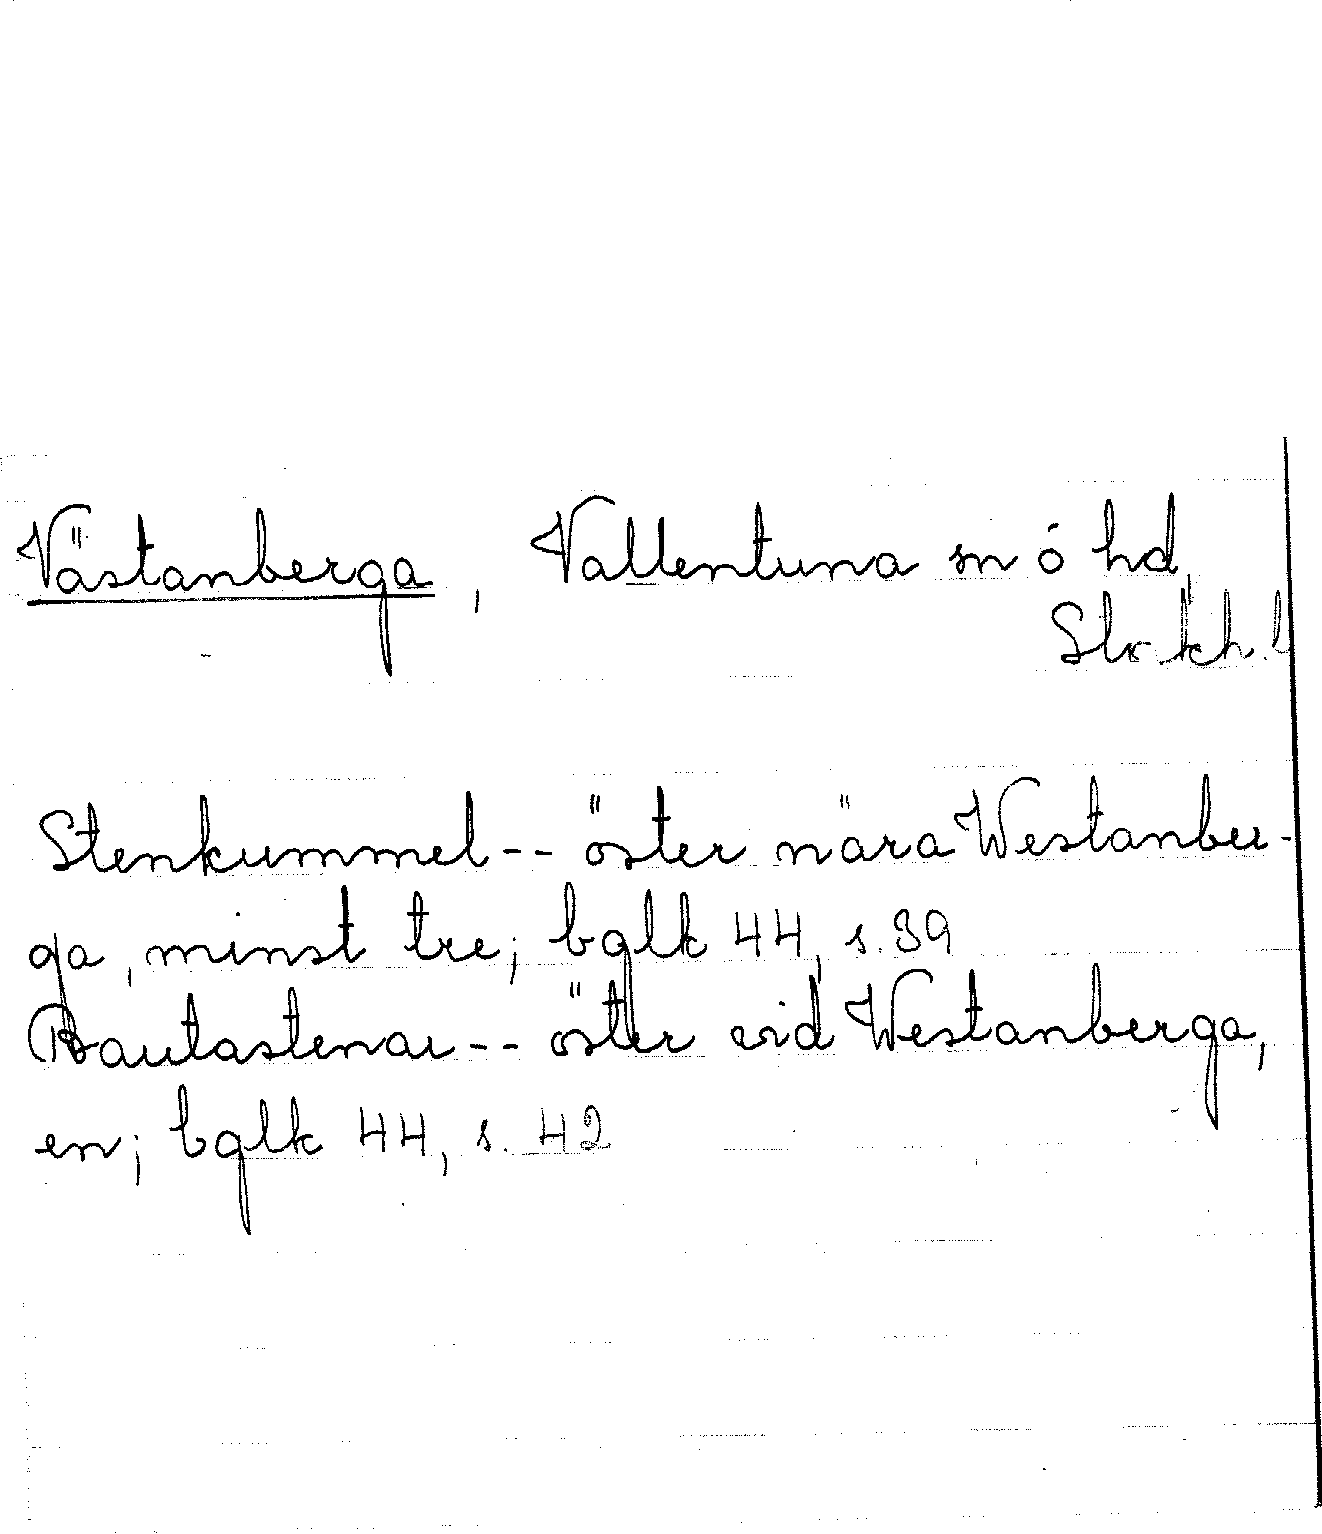 Västanberga, Vallentuna sn ó hd,
Sthlm
Stenkummel -- öster nära Westanber-
ga, minst tre; bglk 44, s. 39
Bautastenar -- öster vid Westanberga,
en; bglk 44, s. 42